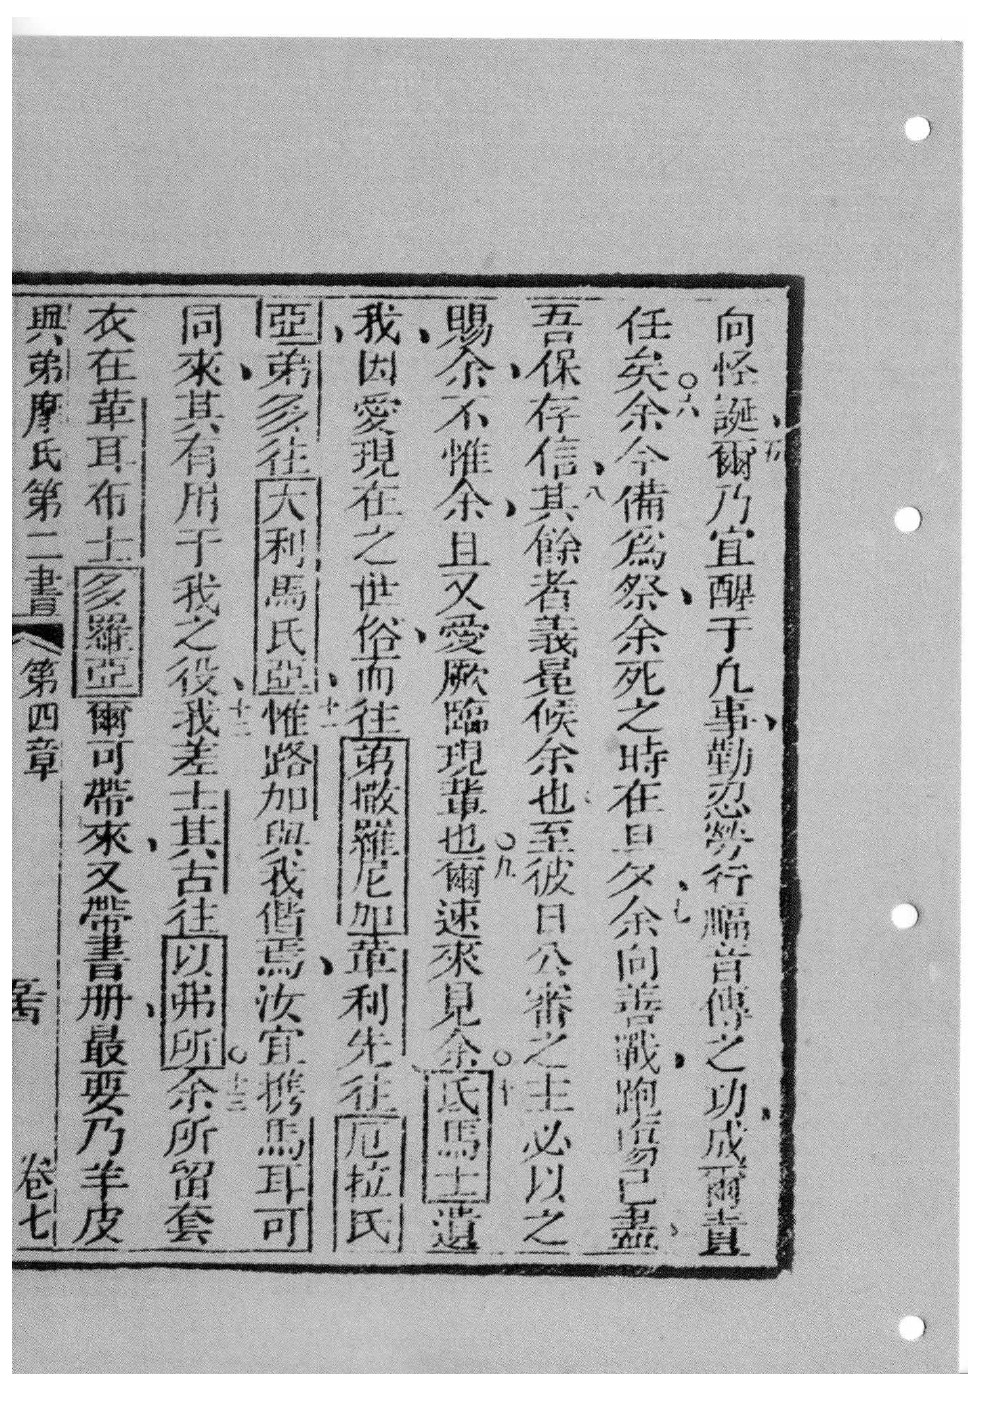 向怪誕、五爾乃宜醒于凡事、勤忍勞行福音傳之功、成爾責
任矣。六余今備為祭、余死之時在旦夕、七余向善戰、跑場已盡、
吾保存信、八其餘者義冕候余也、至彼日公審之主必以之
賜余、不惟余、且又愛厥臨現輩也。九爾速來見余。十氐馬士遺
我、因愛現在之世俗、而往弟撒羅尼加韋利先往厄拉氐
亞、弟多往大利馬氐亞、十一惟路加與我偕焉、汝宜携馬耳可
同來、其有用于我之役、十二我差士其古往以弗所。十三余所留套
衣在韋耳布士多羅亞爾可帶來、又帶書册、最要乃羊皮
與弟摩氐第二書 第四章 卷七